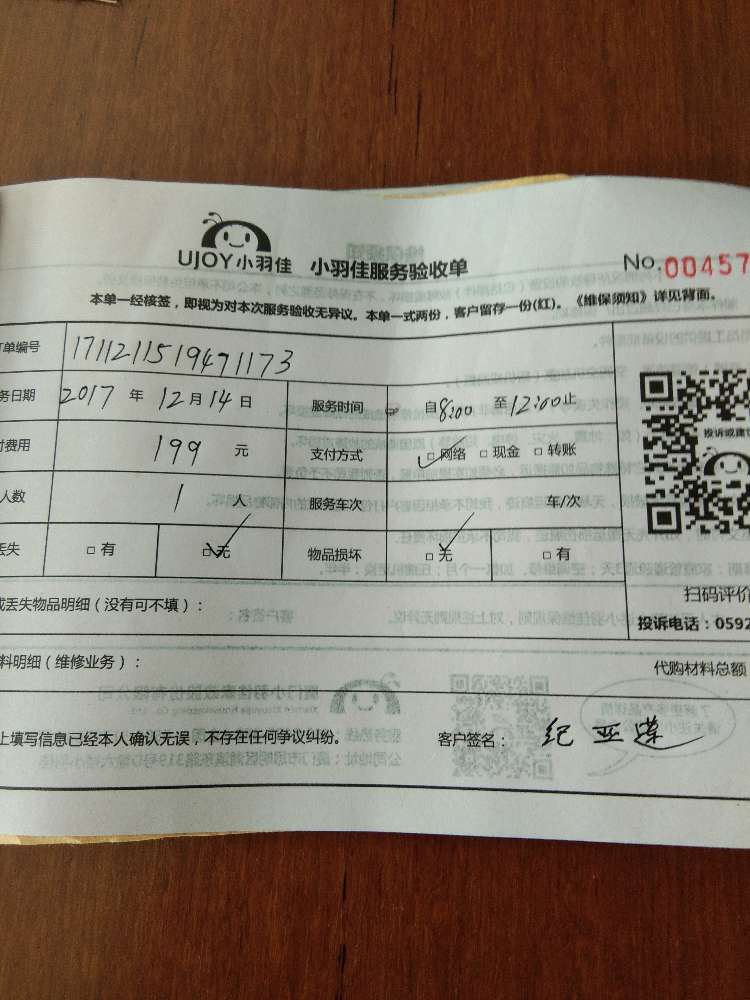 UJOY小羽佳 小羽佳服务验收单 No.00457
本单一经核签，即视为对本次服务验收无异议。本单一式两份，客户留存一份(红)。《维保须知》详见背面。
单编号 1711211519471173
务日期 2017 年 12 月 14 日 服务时间 自8:00 至12:00止
费用 199 元 支付方式 □网络 □现金 □转账
人数 1 人 服务车次 车/次
丢失 □有 □无 物品损坏 □无 □有
投诉或建议
扫码评价
或丢失物品明细（没有可不填）：
投诉电话：0592
料明细（维修业务）： 代购材料总额
上填写信息已经本人确认无误，不存在任何争议纠纷。 客户签名： 纪亚